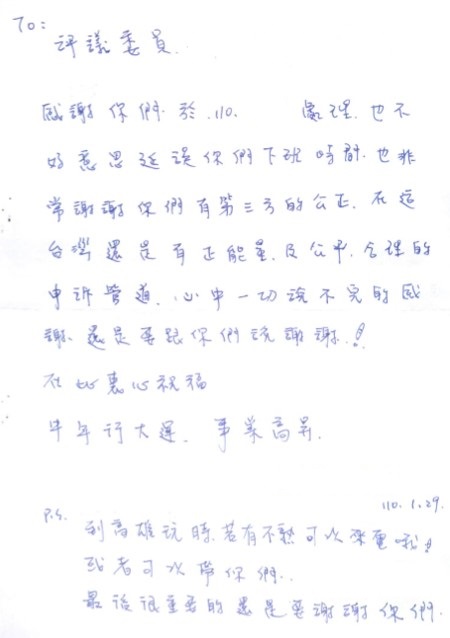 To:
評議委員.
感謝你們於.110. 處理.也不
好意思延誤你們下班時間.也非
常謝謝你們有第三方的公正.在這
台灣還是有正能量.及公平.合理的
申訴管道.心中一切說不完的感
謝.還是要跟你們說謝謝.!
在此衷心祝福
牛年行大運.事業高昇.
110.1.29.
P.S. 到高雄玩時.若有不熟可以來電呦!
或者可以帶你們..
最後很重要的還是要謝謝你們.